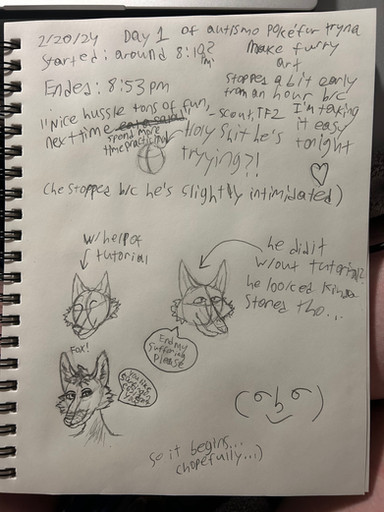 2/20/24 Day 1 of autismo pokéfur tryna
make furry
art
Started: around 8:19? pm
Ended: 8:53 pm
stopped a bit early
from an hour b/c
I'm taking
it easy
tonight
"Nice hussle tons of fun,
next time eat a salad" - scout, TF2
spend more
time practicing
Holy shit he's
tryying?!
(he stopped b/c he's slightly intimidated)
w/ help of
tutorial
he did it
w/out tutorial?
he looked kinda
stoned tho...
End my
suffering
please
Fox!
so it begins...
(hopefully...)